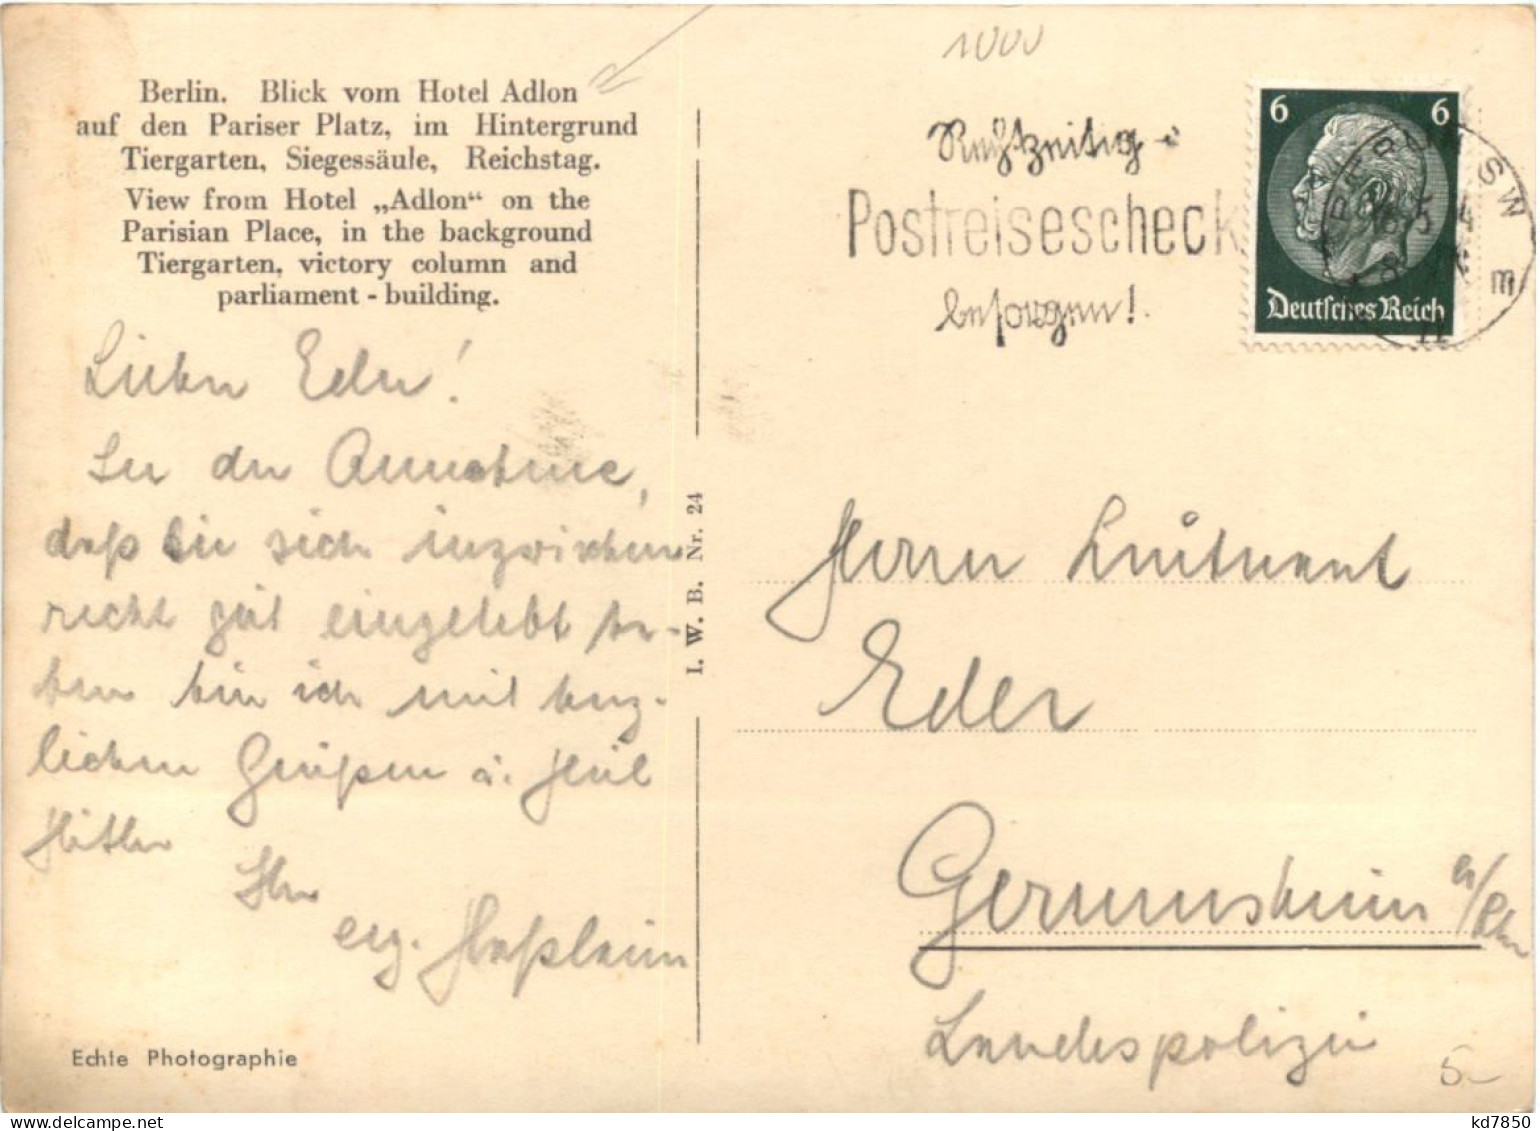 1000
Berlin. Blick vom Hotel Adlon
auf den Pariser Platz, im Hintergrund
Tiergarten, Siegessäule, Reichstag.
View from Hotel „Adlon“ on the
Parisian Place, in the background
Tiergarten, victory column and
parliament - building.
Lieber Eder!
In der Annahme,
daß Sie sich inzwischen
recht gut eingelebt ha-
ben bin ich mit herz-
lichen Grüßen u. Heil
Hitler
Ihr
erg.
Echte Photographie
I. W. B. Nr. 24
Rechtzeitig
Postreisescheck
besorgen!
6 6
Deutsches Reich
BERLIN SW
11
m
Herrn Leutnant
Eder
Germersheim a/Rhn
Landespolizei
5-
kd7850